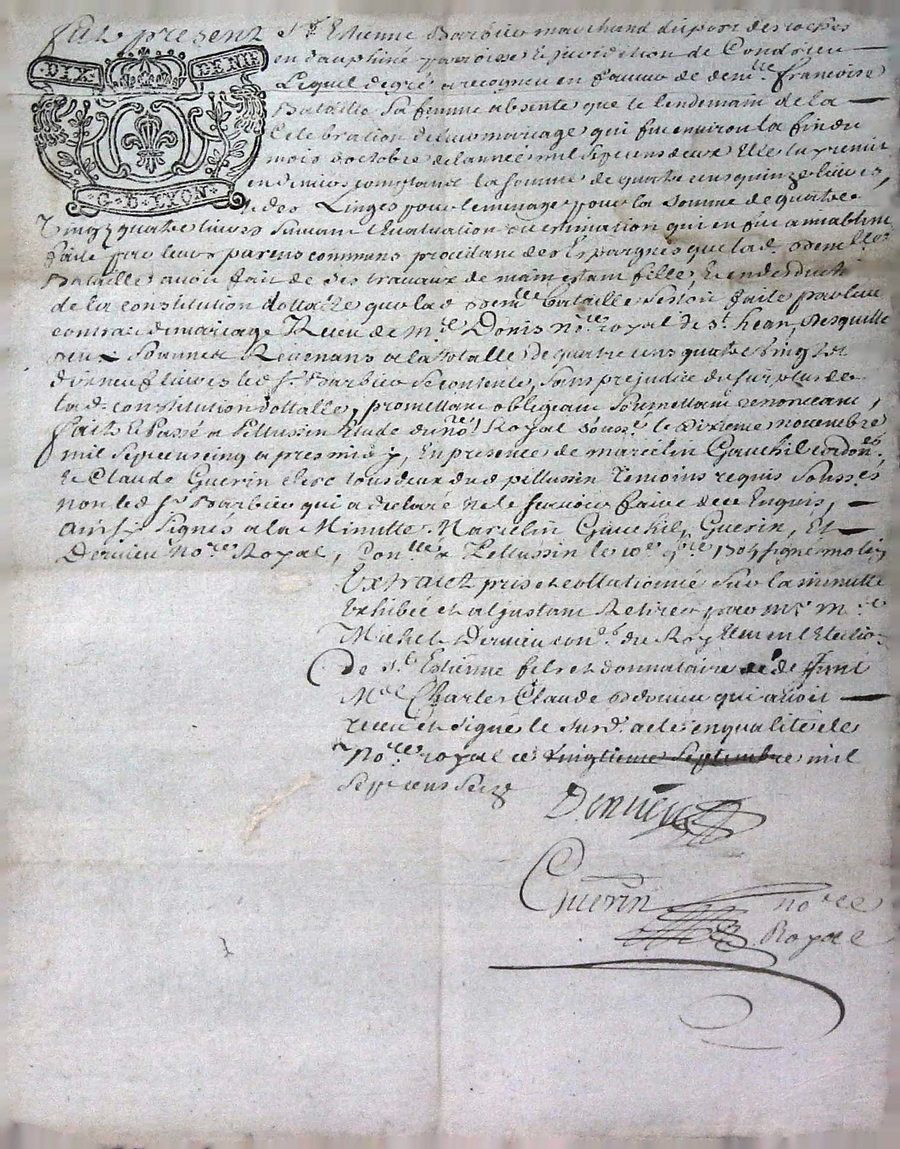 Fut present Sr. Estienne Barbier marchand du port des roches
DIX DENIE
en dauphiné paroisse & juridiction de Condrieu
Lequel de gré a recogneu en faveur de demlle francoise
Bataille sa femme absente que le lendemain de la
Celebration de leur mariage qui fut environ la fin du
mois d'octobre de lannée mil sept cens deux Elle luy remit
en deniers comptants la somme de quatre cens quinze livres,
G. D LYON
& des Linges pour le menage pour la somme de quatre
vingt quatre livres suivant Levaluation ou estimation qui en fut amiablement
faite par leurs parens communs procedant des Espargnes que lad. demlle
Bataille avoit fait de ses travaux de main estant fille, Et en deduction
de la constitution dottalle que lad demlle bataille sestoit faite par leur
contrat de mariage Receu de Me Denis nore royal de st Jean, Desquelles
deux sommes Revenans a la totalle de quatre cens quatre vingt
dix neuf livres led. sr. Barbier se contente, sans prejudice du surplus de
lad. constitution dottalle, promettant obligeant soumettant renonceant,
fait & Passé a Pellussin Etude du nore Royal souss. le dixieme novembre
mil sept cens cinq apres midy, En presence de marcelin Gauchil cordonr
& Claude Guerin clerc tous deux dud pellussin Temoins requis Soussés
non led Sr. Barbier qui a declaré ne le scavoir faire de ce Enquis,
Ainsy Signés a la Minutte Marcelin Gauchil, Guerin, Et
Dervieu nore Royal, Conlle a Pellussin le 10e 9bre 1705 signé
Extrait pris et collationné sur la minutte
Exhibée et a linstant Retirée par
Michel Dervieu conr du Roy en l Election
De St Estienne fils et donnataire de feu
Me Charles Claude Dervieu qui avoit
receu et signé le surd. acte en qualité de
nore royal ce vingtieme septembre mil
sept cens seize
Dervieu
Guerin nore
Royal